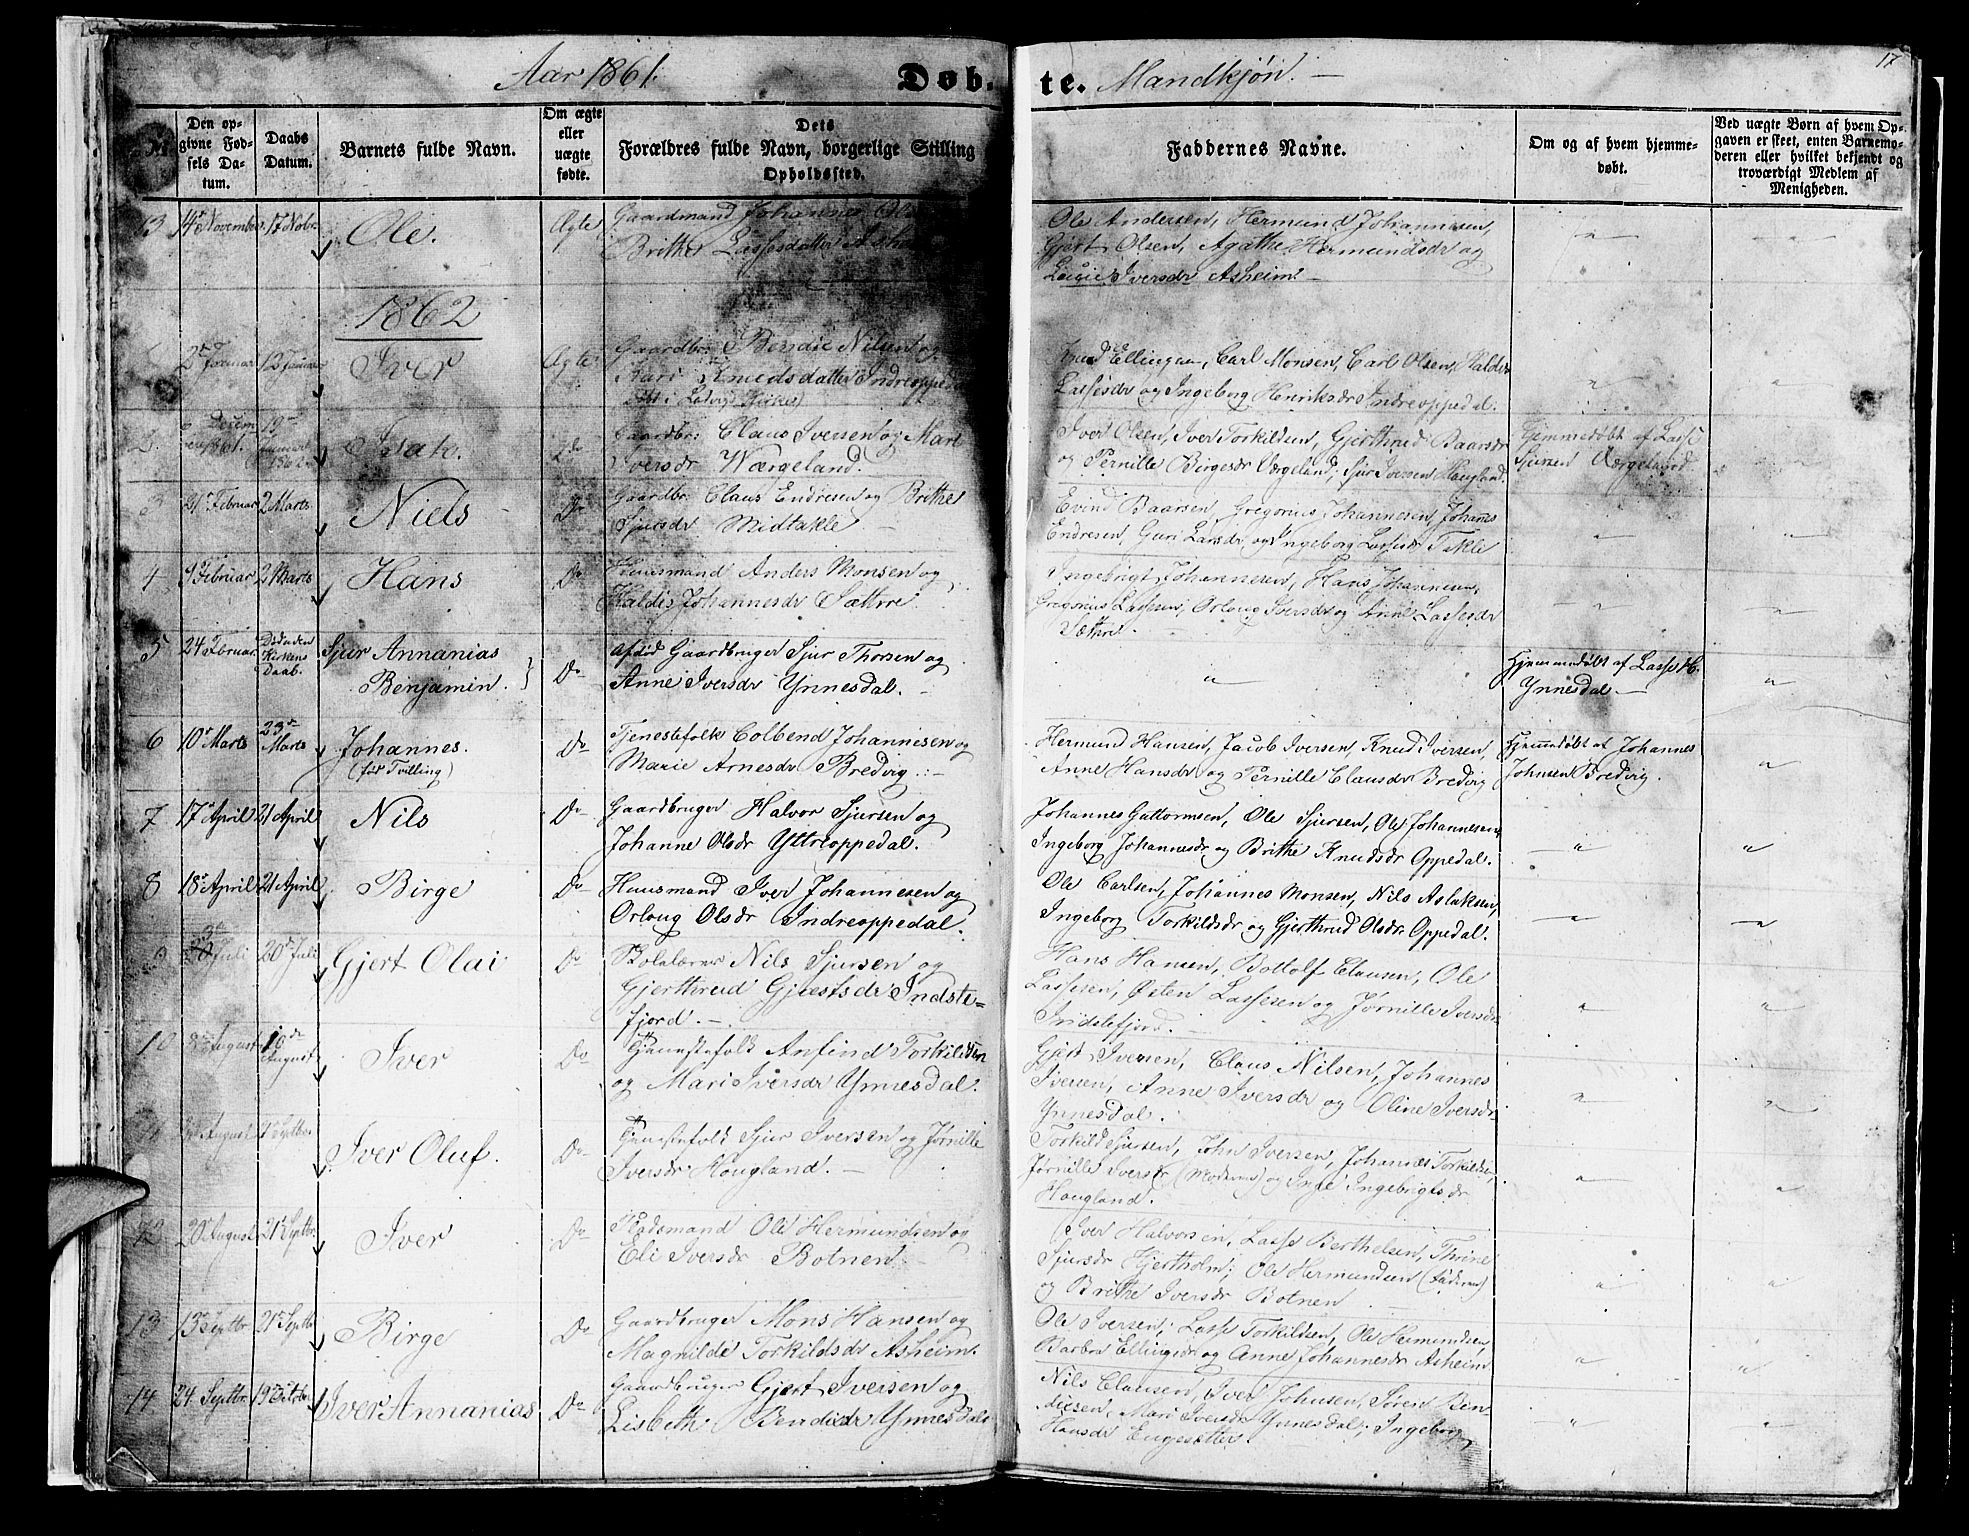 17
Aar 1861. Døb- te. Mandkjøn. —
№
Den opgivne Fødsels Datum.
Daabs Datum.
Barnets fulde Navn.
Om ægte eller uægte fødte.
Dets Forældres fulde Navn, borgerlige Stilling Opholdssted.
Faddernes Navne.
Om og af hvem hjemmedøbt.
Ved uægte Børn af hvem Opgaven er skeet, enten Barnemoderen eller hvilket bekjendt og troværdigt Medlem af Menigheden.
13 14de November 17 Nobr. Ole. Ægte
Gaardmand Johannes
Brithe Lassesdatter
Ole Andersen, Hermund Johannesen,
Gjert Olsen, Agathe Hermundsdr og
Iversdr Asheim. —
1862
2den Januar 12 Januar Iver Ægte
Gaardbr: Bendic Nilsen og
Kari Knudsdatter Indreoppedal
Knud Ellingsen, Carl Monsen, Carl Olsen, Kaldis
Lassesdr og Ingeborg Henriksdr Indreoppedal.
2 Decem 1861. 19de Januar 1862 Isak. Do
Gaardbr: Claus Iversen og Mari
Iversdr Wærgeland.
Iver Olsen, Iver Torkildsen, Gjerthrud Baarsdr
og Pernille Birgesdr Værgeland; Sjur Iversen Haugland.
Hjemmedøbt af Lasse
Sjursen Værgeland
3 Februar 2 Marts Niels Do
Gaardbr: Claus Endresen og Brithe
Sjursdr Midtakle —
Evind Baarsen, Gregorius Johannesen, Johanes
Endresen, Guri Larsdr og Ingeborg Lassesdr Takle
4 9 Februar 2 Marts Hans Do
Huusmand Anders Monsen og
Kaldis Johannesdr Sættre.
Ingebrigt Johannesen, Hans Johannesen,
Gregorius Lassesen, Orloug Iversdr og Anne Lassesdr
Sæthre.
5 24 Februar Død uden Kirkens Daab. Sjur Annanias
Benjamin. } Do
afdød Gaardbruger Sjur Thorsen og
Anne Iversdr Ynnesdal. —
Hjemmedøbt af Lasse H.
Ynnesdal —
6 10de Marts 23de Marts Johannes.
(før Tvilling) Do
Tjenestefolk Colbend Johannesen og
Marie Arnesdr Bredvig. —
Hermund Hansen, Jacob Iversen, Knud Iversen,
Anne Hansdr og Pernille Clausdr Bredvig
Hjemmedøbt af Johannes
Johnsen Bredvig.
7 17de April 21 April Nils Do
Gaardbruger Halvor Sjursen og
Johanne Olsdr Yttreoppedal.
Johannes Guttormsen, Ole Sjursen, Ole Johannesen,
Ingeborg Johannesdr og Brithe Knudsdr Oppedal.
8 18de April 21 April Birge Do
Huusmand Iver Johannesen og
Orloug Olsdr Indreoppedal.
Ole Carlsen, Johannes Monsen, Nils Aslaksen,
Ingeborg Torkildsdr og Gjerthrud Olsdr Oppedal.
9 3de Juli 20de Juli Gjert Olai Do
Nils Sjursen og
Gjerthrud Gjertsdr Indste-
fjord. —
Hans Hansen, Bottolf Clausen, Ole
Lassesen, Østen Lassesen og Jørnille Iversdr
Indstefjord.
10 August 10de August Iver Do
Tjenestefolk Anfind Torkildsen
og Mari Iversdr Ynnesdal.
Gjert Iversen, Claus Nilsen, Johannes
Iversen, Anne Iversdr og Oline Iversdr
Ynnesdal.
August 21 Septbr. Iver Oluf. Do
Tjenestefolk Sjur Iversen og Jørnille
Iversdr Hougland. —
Torkild Sjursen, John Iversen, Johannes Torkildsen,
Jørnille Iversdr (Moderen) og Inge Ingebrigtsdr
Hougland.
12 20de August 21de Septbr. Iver Do
Pladsmand Ole Hermundsen og
Eli Iversdr Botnen —
Iver Halvorsen, Lasse Berthelsen, Thrine
Sjursdr Hjertholm; Ole Hermundsen (Faderen)
og Brithe Iversdr Botnen
13 13de Septbr 21de Septbr Birge Do
Gaardbruger Mons Hansen og
Magnilde Torkildsdr Asheim.
Ole Iversen, Lasse Torkildsen, Ole Hermundsen,
Barbro Ellingsdr og Anne Johannesdr Asheim
14 24 Septbr. 19 October Iver Annanias Do
Gaardbruger Gjert Iversen og
Lisbeth Bendicsdr Ynnesdal
Nils Clausen, Iver Johnsen, Søren Ben-
dicsen, Mari Iversdr Ynnesdal; Ingeborg
Hansdr Engesætter.